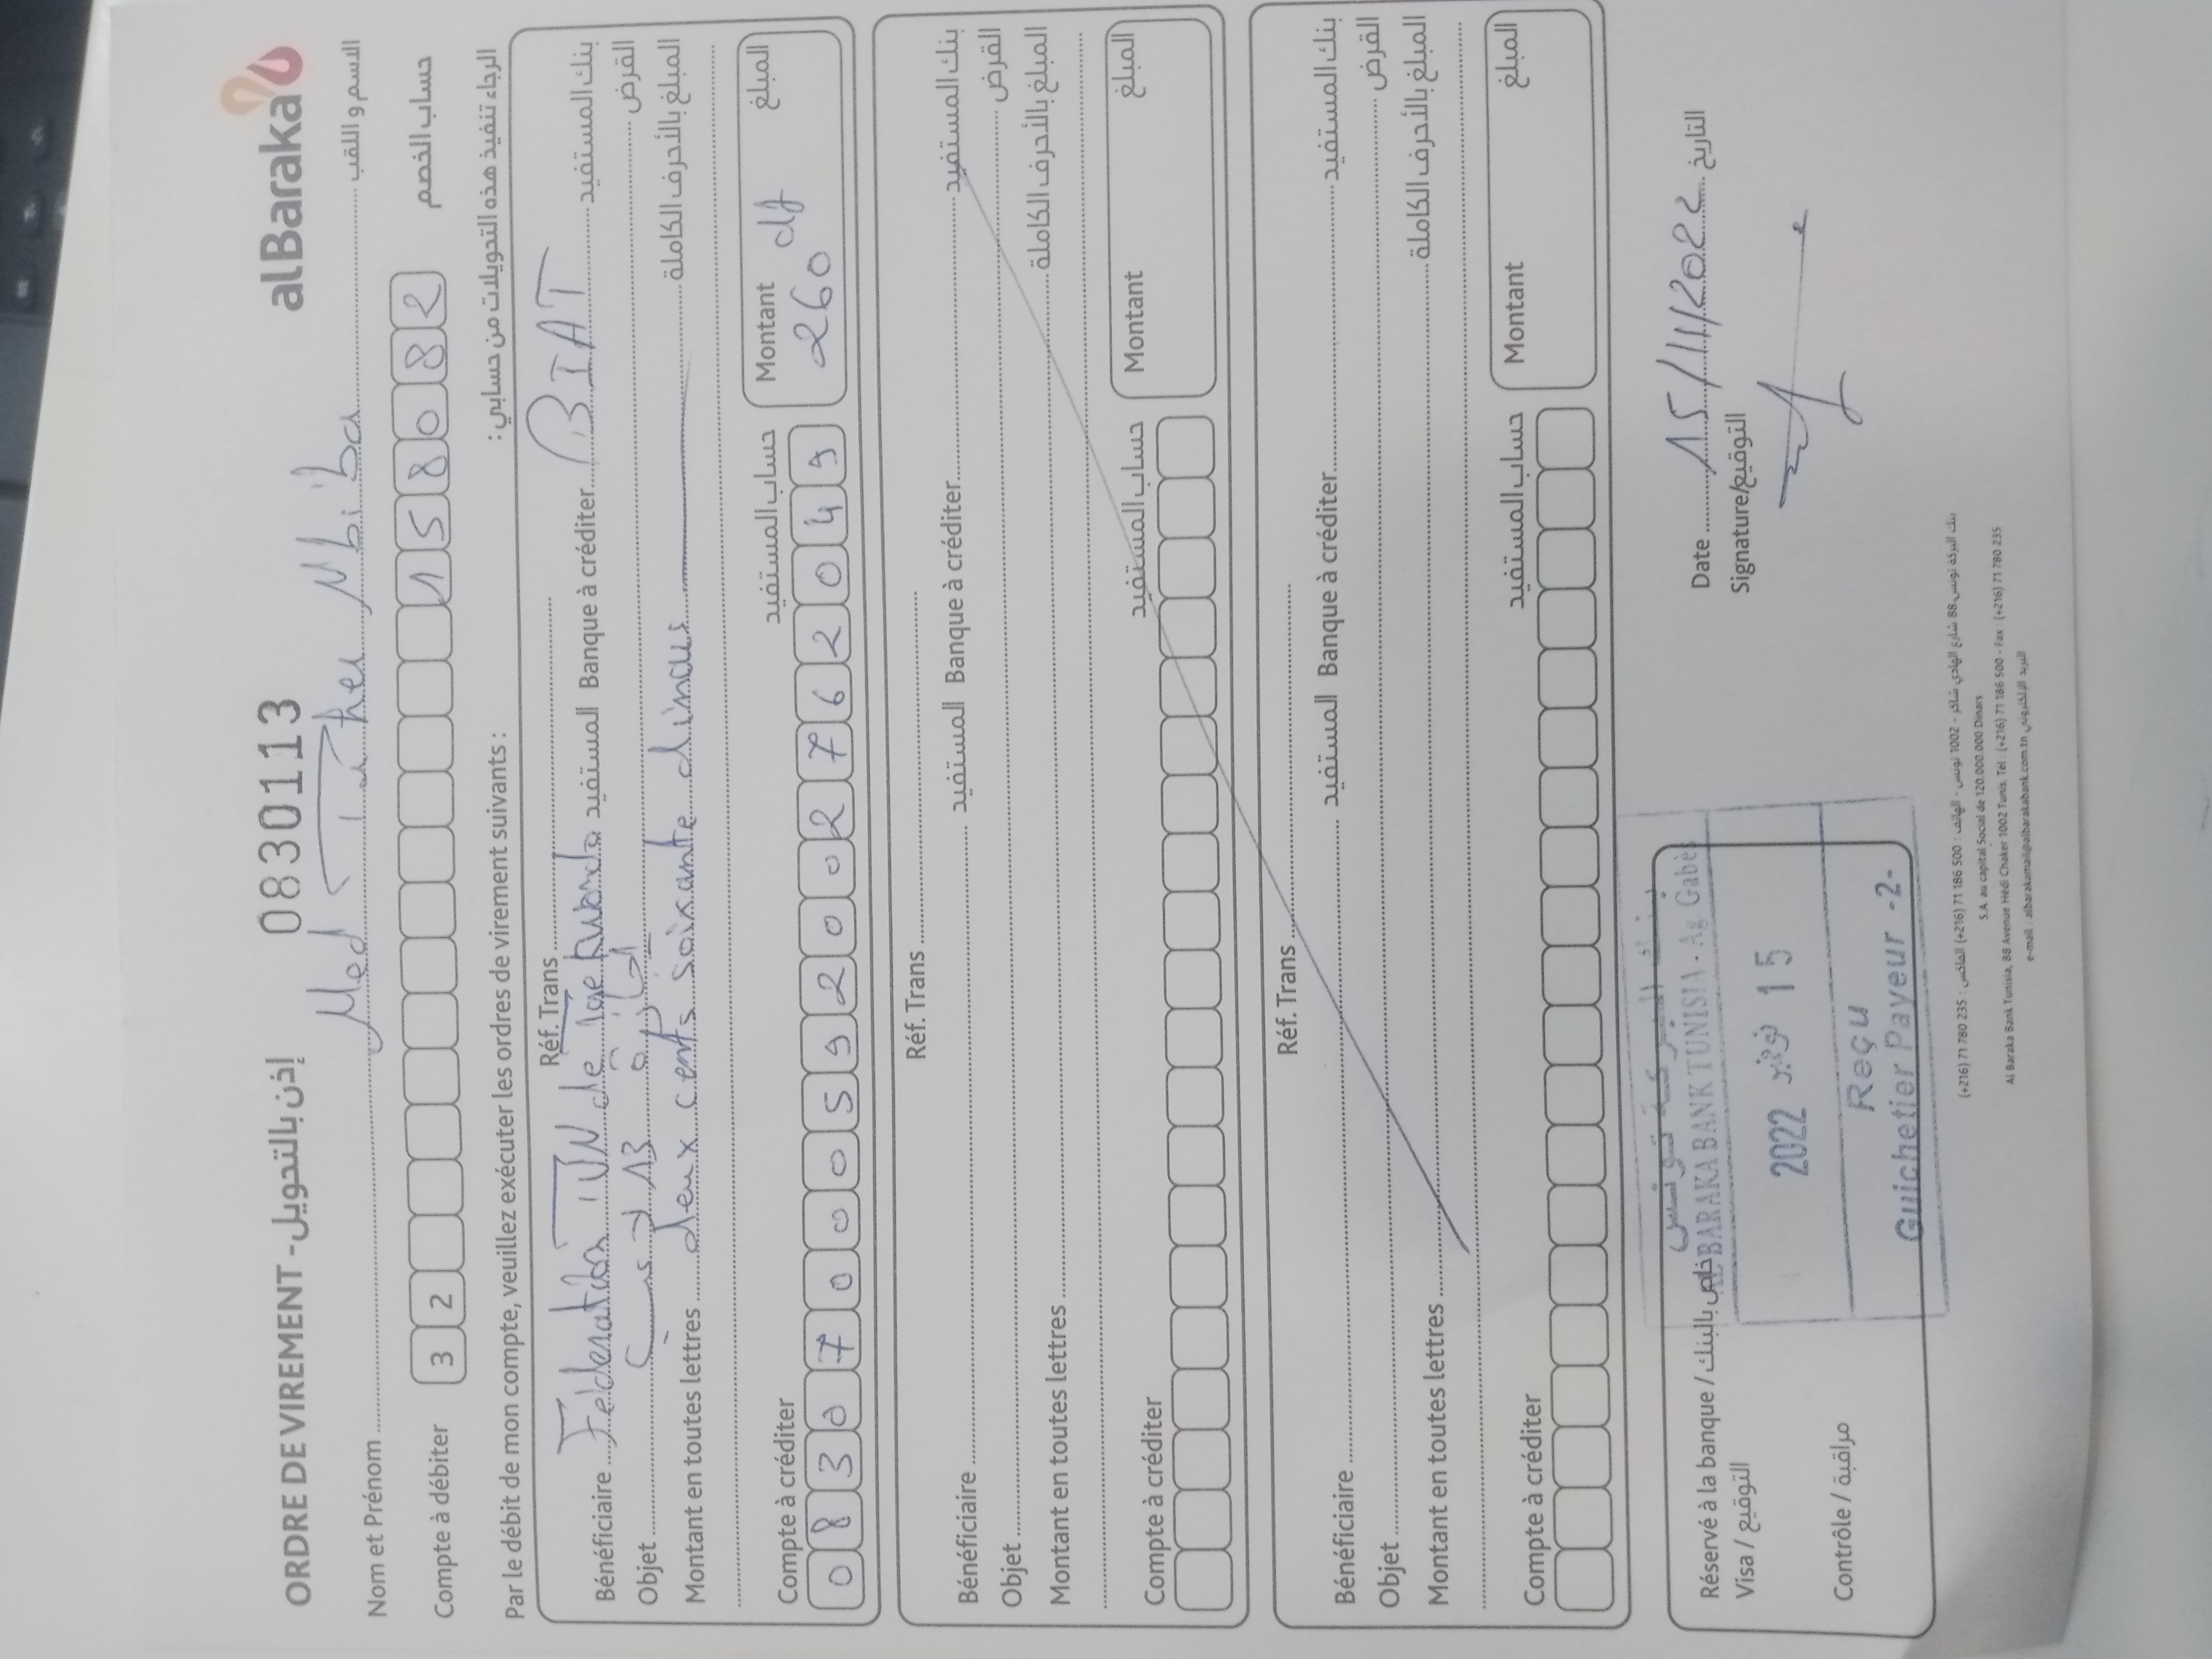 ORDRE DE VIREMENT - إذن بالتحويل 0830113 alBaraka
Nom et Prénom Med Taher Nbiba الاسم و اللقب
Compte à débiter 3 2 1 5 8 0 8 2 حساب الخصم
Par le débit de mon compte, veuillez exécuter les ordres de virement suivants : الرجاء تنفيذ هذه التحويلات من حسابي :
Réf. Trans
Bénéficiaire TUN de المستفيد Banque à créditer BIAT بنك المستفيد
Objet 13 الغرض
Montant en toutes lettres deux cents soixante dinars المبلغ بالأحرف الكاملة
Compte à créditer حساب المستفيد Montant المبلغ
0 8 3 0 7 0 0 0 5 9 2 0 0 2 7 6 2 0 4 9 260 dt
Réf. Trans
Bénéficiaire المستفيد Banque à créditer بنك المستفيد
Objet الغرض
Montant en toutes lettres المبلغ بالأحرف الكاملة
Compte à créditer حساب المستفيد Montant المبلغ
Réf. Trans
Bénéficiaire المستفيد Banque à créditer بنك المستفيد
Objet الغرض
Montant en toutes lettres المبلغ بالأحرف الكاملة
Compte à créditer حساب المستفيد Montant المبلغ
Réservé à la banque / خاص بالبنك
Visa / التوقيع
Contrôle / مراقبة
بنك البركة تونس
AL BARAKA BANK TUNISIA - Ag Gabès
2022 نوفمبر 15
Reçu
Guichetier Payeur -2-
Date 15/11/2022 التاريخ
Signature/التوقيع
بنك البركة تونس 88 شارع الهادي شاكر - 1002 تونس - الهاتف : 500 186 71 (216+) الفاكس : 235 780 71 (216+)
S.A. au capital Social de 120.000.000 Dinars
Al Baraka Bank Tunisia, 88 Avenue Hédi Chaker 1002 Tunis. Tél : (+216) 71 186 500 - Fax : (+216) 71 780 235
e-mail : albarakamail@albarakabank.com.tn البريد الإلكتروني